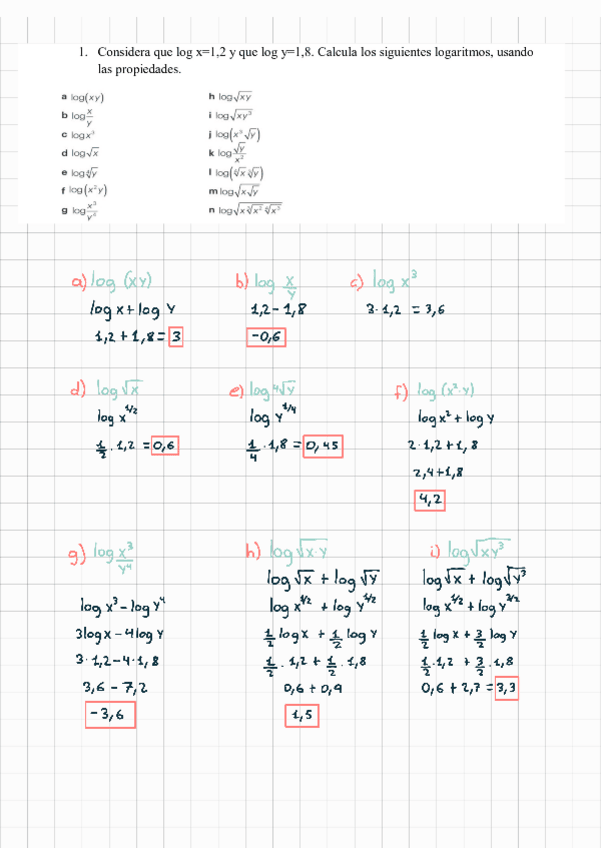 1. Considera que log x=1,2 y que log y=1,8. Calcula los siguientes logaritmos, usando
las propiedades.
a log(xy)
b log x/y
c logx³
d log√x
e log∜y
f log(x²y)
g log x³/y⁴
h log√xy
i log√xy³
j log(x³√y)
k log √y/x²
m log√x√y
a) log (xy)
log x + log y
1,2 + 1,8 = 3
b) log x/y
1,2 - 1,8
-0,6
c) log x³
3 · 1,2 = 3,6
d) log √x
log x^1/2
1/2 · 1,2 = 0,6
e) log ∜y
log y^1/4
1/4 · 1,8 = 0,45
f) log (x²·y)
log x² + log y
2 · 1,2 + 1,8
2,4 + 1,8
4,2
g) log x³/y⁴
log x³ - log y⁴
3 log x - 4 log y
3 · 1,2 - 4 · 1,8
3,6 - 7,2
-3,6
h) log √x·y
log √x + log √y
log x^1/2 + log y^1/2
1/2 log x + 1/2 log y
1/2 · 1,2 + 1/2 · 1,8
0,6 + 0,9
1,5
i) log √xy³
log √x + log √y³
log x^1/2 + log y^3/2
1/2 log x + 3/2 log y
1/2 · 1,2 + 3/2 · 1,8
0,6 + 2,7 = 3,3